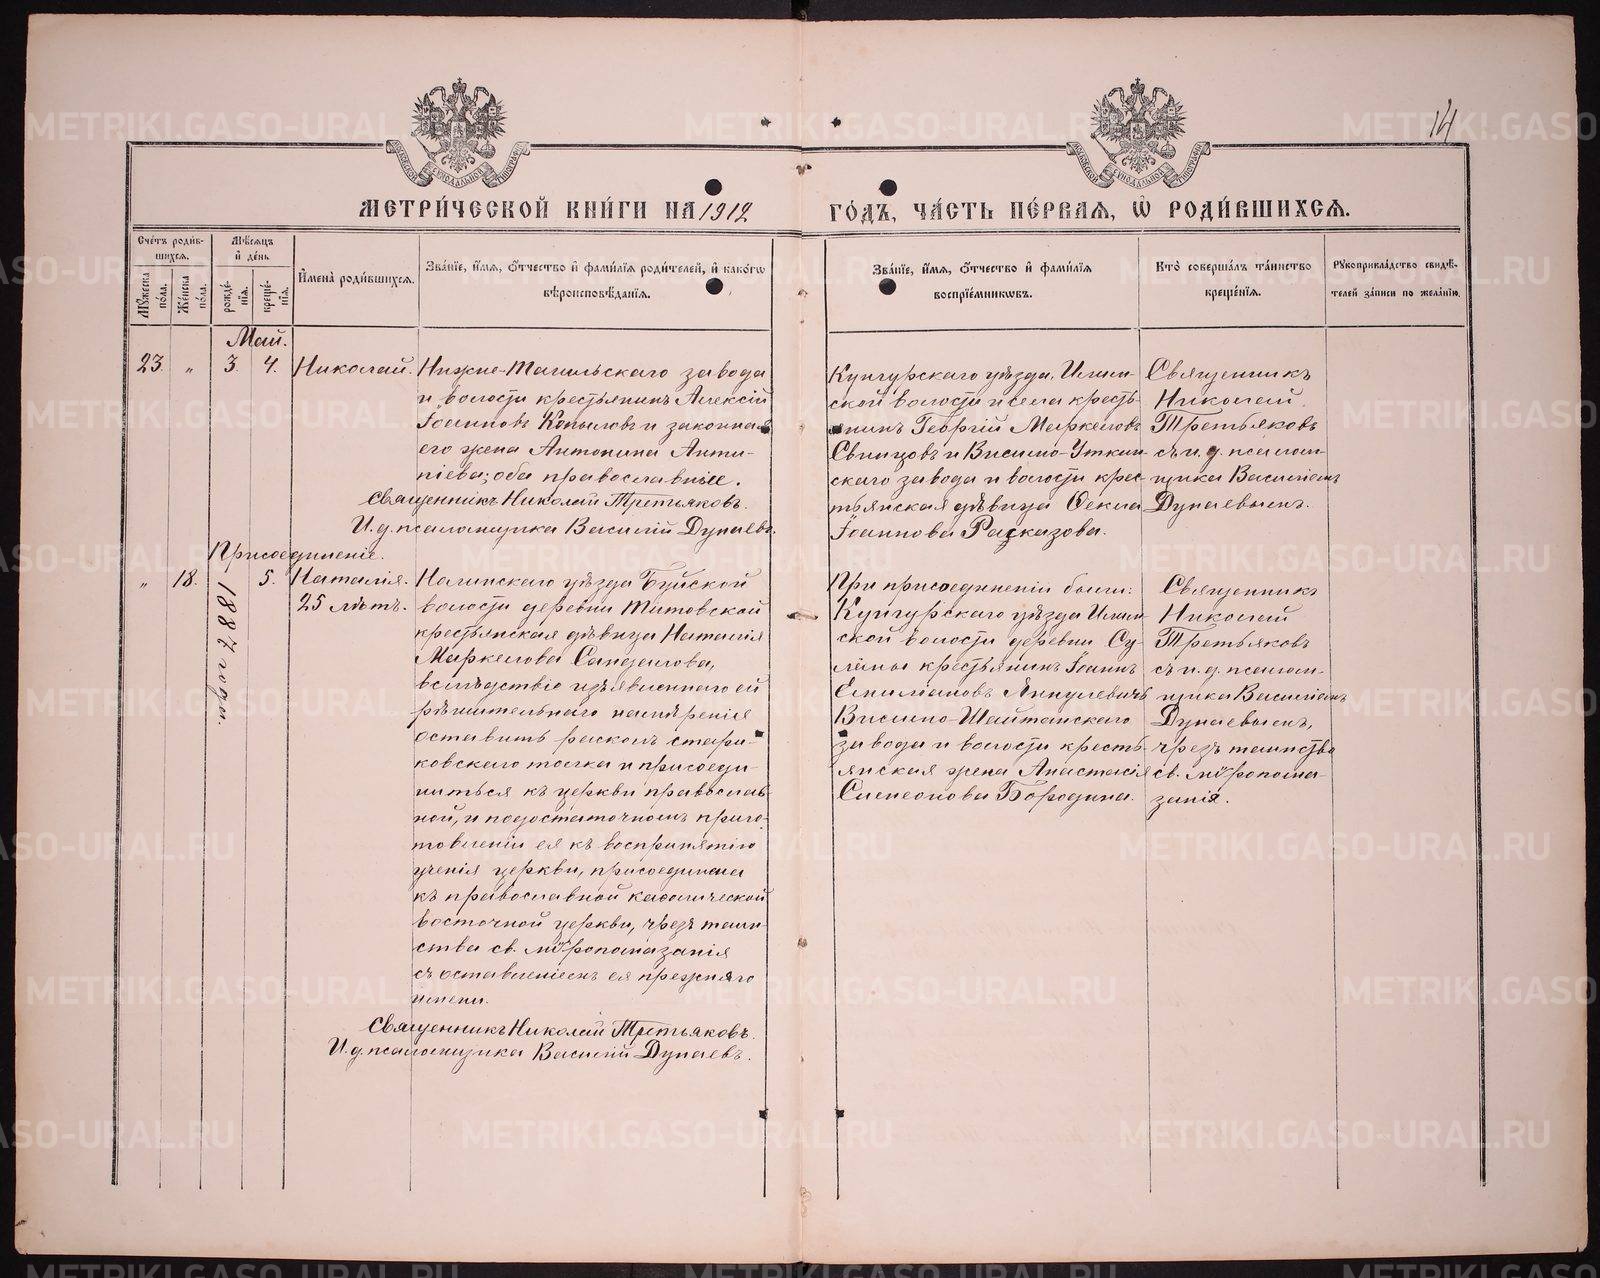 14
МЕТРИ́ЧЕСКОЙ КНИ́ГИ НА 1912 ГО́ДЪ, ЧА́СТЬ ПЕ́РВАЯ, Ѡ РОДИ́ВШИХСЯ.
Сче́тъ роди́в-
шихся.
Му́жеска по́ла.
Же́нска по́ла.
Мѣ́сяцъ и де́нь
рожде́-
нія.
креще́-
нія.
Имена̀ роди́вшихся.
Зва́ніе, и́мя, о́тчество и фами́лія роди́телей, и како́гѡ
вѣроисповѣ́данія.
Зва́ніе, и́мя, о́тчество и фами́лія
воспріе́мниковъ.
Кто̀ соверша́лъ та́инство
креще́нія.
Рукоприкла́дство свидѣ́-
телей за́писи по жела́нію.
Май.
23. „ 3. 4. Николай.
Нижне-Тагильскаго завода
и волости крестьянинъ Алексій
Іоанновъ Копыловъ и законная
его жена Антонина Анти-
піева; оба православные.
Священникъ Николай Третьяковъ.
И. д. псаломщика Василій Дунаевъ.
Кунгурскаго уѣзда, Илим-
ской волости и села кресть-
янинъ Георгій Маркеловъ
Свинцовъ и Висимо-Уткин-
скаго завода и волости крес-
тьянская дѣвица Ѳекла
Іоаннова Расказова.
Священникъ
Николай
Третьяковъ
съ и. д. псалом-
щика Василіемъ
Дунаевымъ.
Присоединеніе.
„ 18. 1887 года. 5. Наталія.
25 лѣтъ.
Налинскаго уѣзда Буйской
волости деревни Титовской
крестьянская дѣвица Наталія
Маркелова Сандалова,
вслѣдствіе изъявленнаго ей
рѣшительнаго намѣренія
оставить расколъ стари-
ковскаго толка и присоеди-
ниться къ церкви православ-
ной, и по достаточномъ приго-
товленіи ея къ воспринятію
ученія церкви, присоединена
къ православной каѳолической
восточной церкви, чрезъ таин-
ства св. мѵропомазанія
съ оставленіемъ ея прежняго
имени.
Священникъ Николай Третьяковъ.
И. д. псаломщика Василій Дунаевъ.
При присоединеніи были:
Кунгурскаго уѣзда Илим-
ской волости деревни Су-
лёмы крестьянинъ Іоаннъ
Емиліановъ Янкулевичъ
Висимо-Шайтанскаго
завода и волости кресть-
янская жена Анастасія
Симеонова Бородина.
Священникъ
Николай
Третьяковъ
съ и. д. псалом-
щика Василіемъ
Дунаевымъ,
чрезъ таинство
св. мѵропома-
занія.